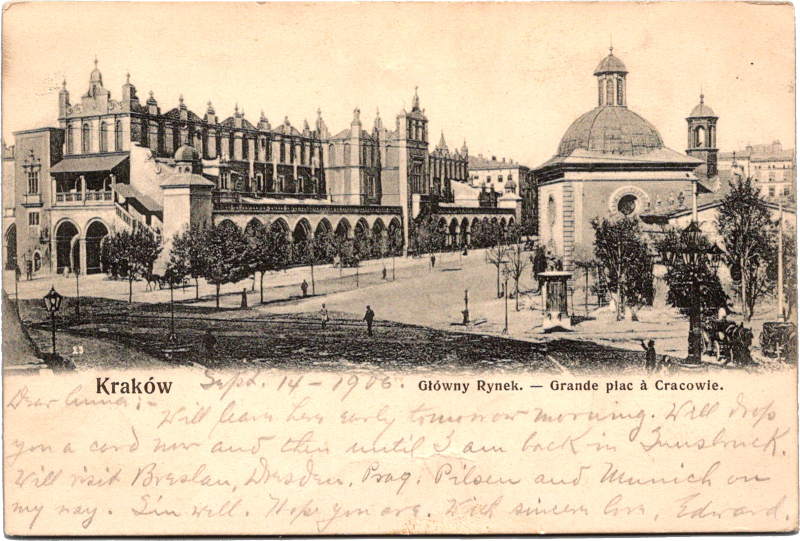 23
Kraków Sept. 14 - 1906. Główny Rynek. — Grande plac à Cracowie.
Dear Anna: -
Will leave here early tomorrow morning. Will drop
you a card now and then until I am back in Innsbruck.
Will visit Breslau, Dresden, Prag, Pilsen and Munich on
my way. I'm well. Hope you are. With sincere love, Edward.